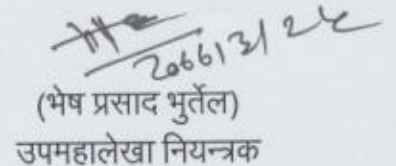 २०६६।३।२५
(भेष प्रसाद भुर्तेल)
उपमहालेखा नियन्त्रक